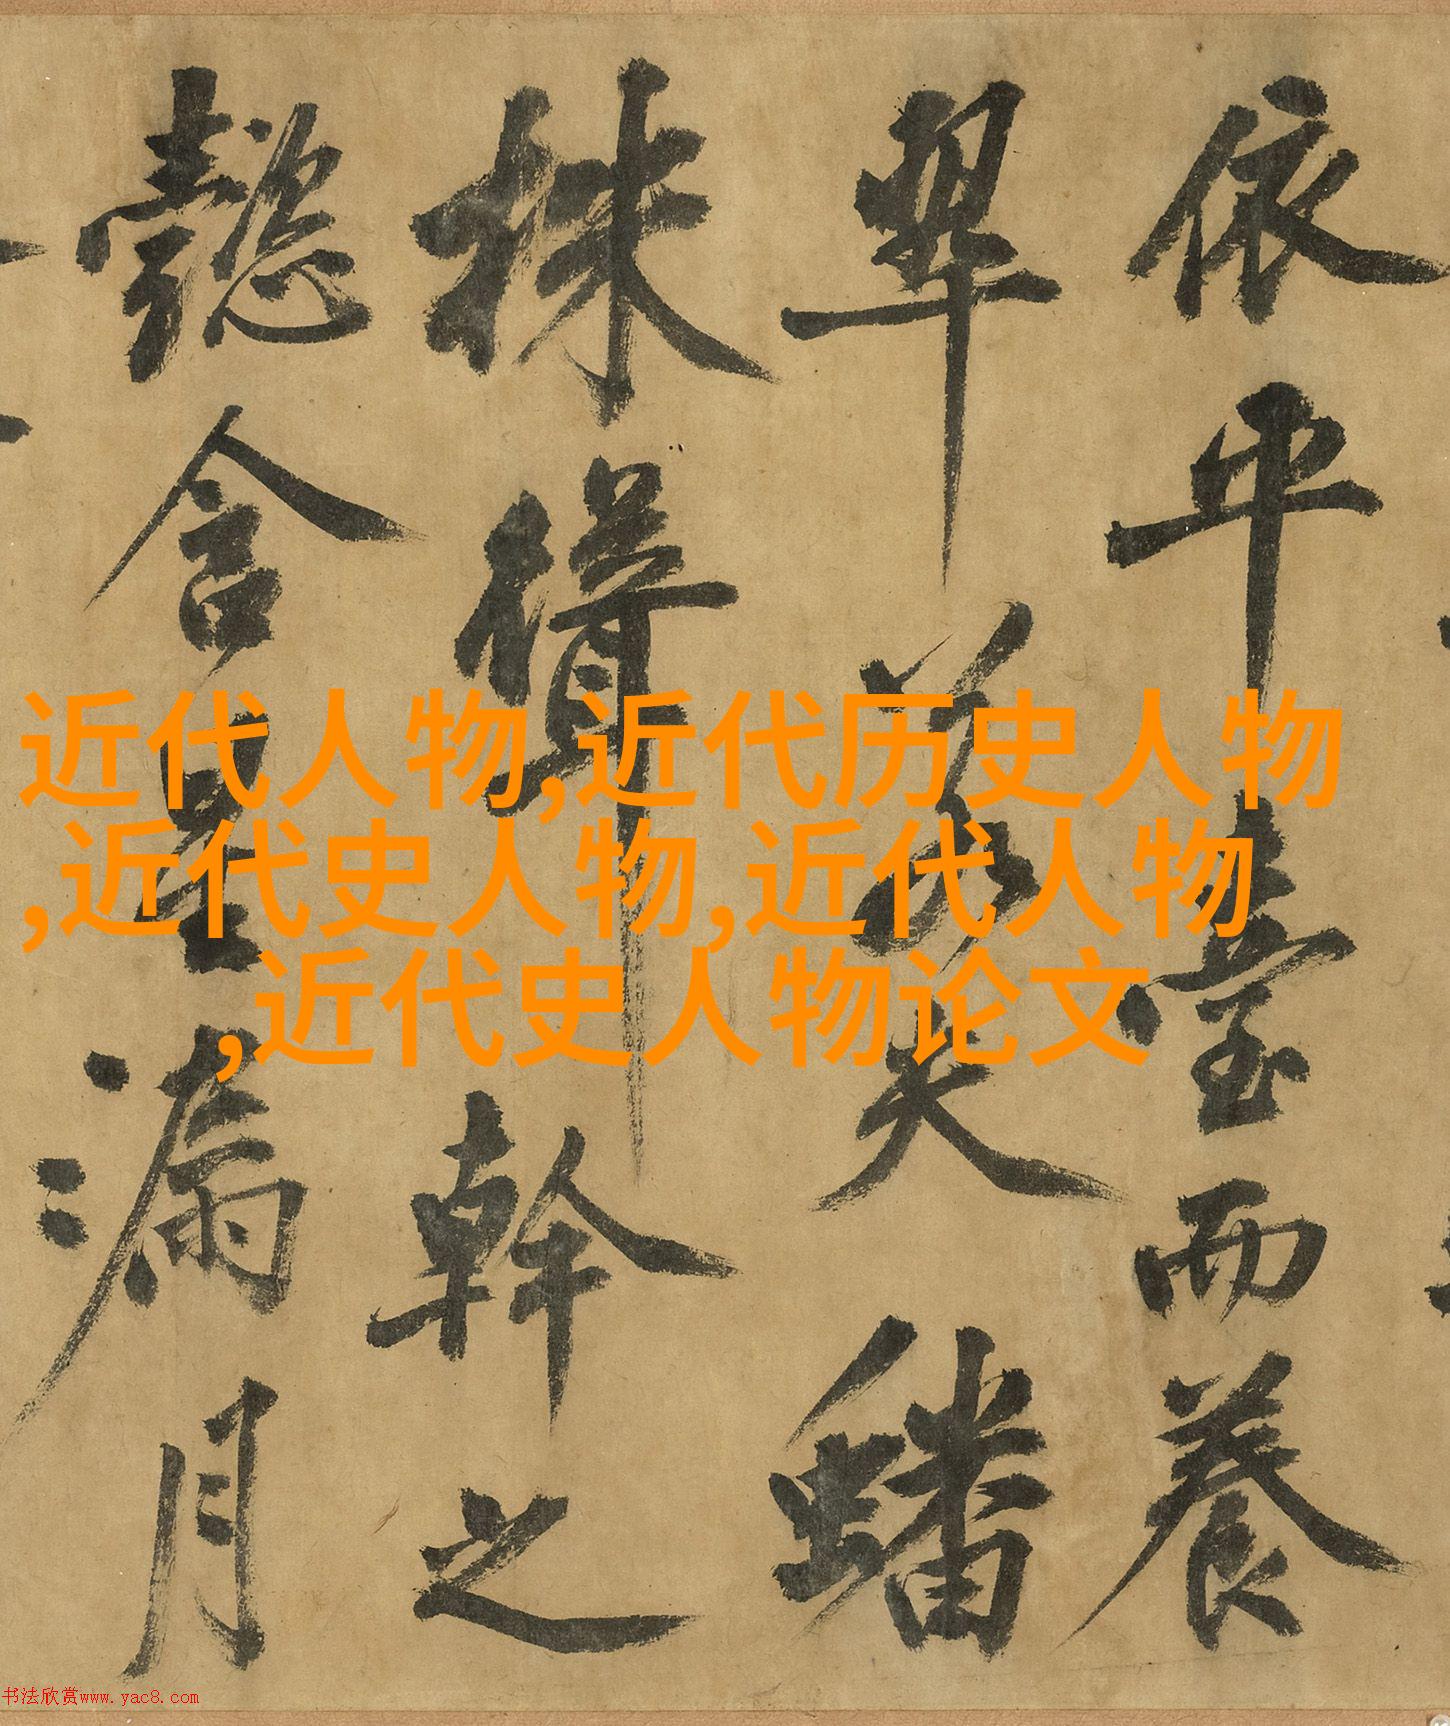 依平臺而養
翠若夫蟠
株聳幹之
懿含星漏月
近代人物,近代历史人物
,近代史人物,近代人物
,近代史人物论文
书法欣赏www.yac8.com